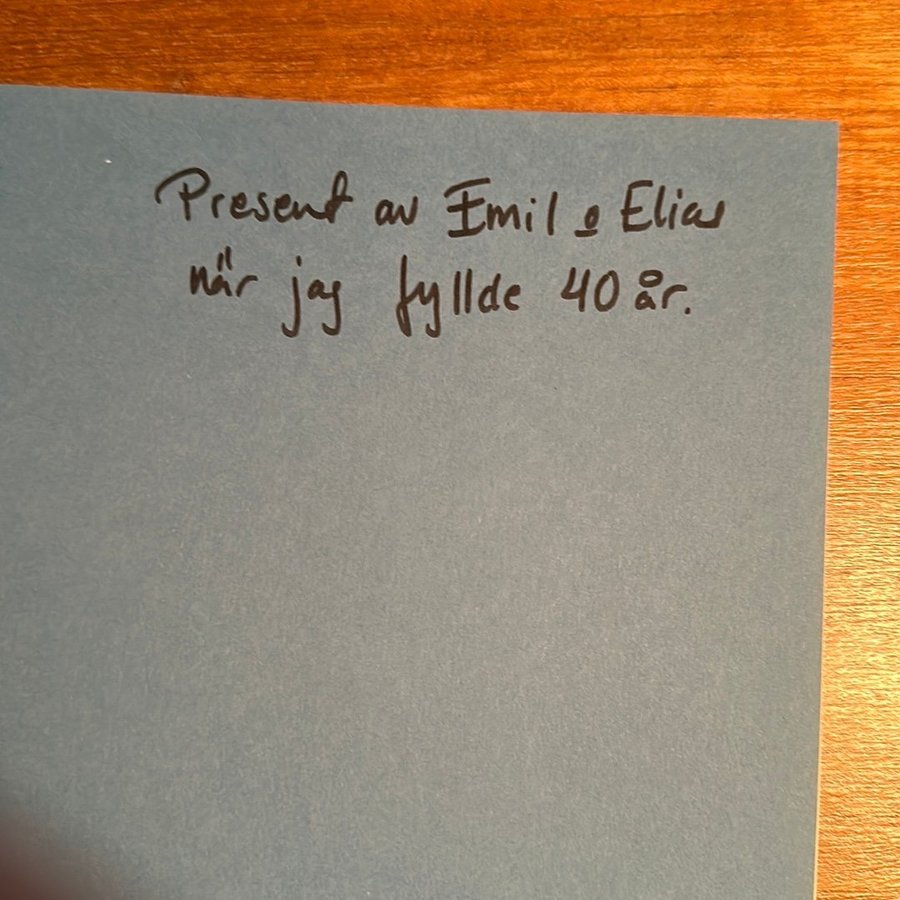 Present av Emil o Elias
när jag fyllde 40 år.